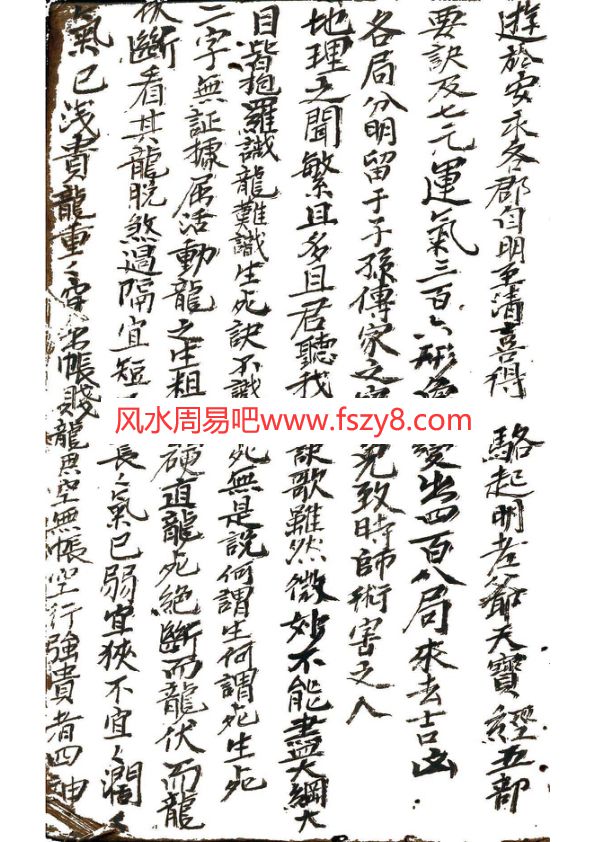 遊於安永各郡自明至清喜得 駱起明老爺天寶經五部
要訣及七元運氣三百六形 變出四百八局來去吉凶
各局分明留于子孫傳家之 免致時師術害之人
地理之聞繁且多且君聽我 訣歌雖然微妙不能盡大綱大
目皆抱羅識龍難識生死訣不識 死無是說何謂生何謂死生死
二字無証據屈活動龍之生粗 硬直龍死絕斷而龍伏而龍
斷看其龍脫煞過隔宜短 長々氣已弱宜狹不宜々濶々
氣已浅貴龍重々 出帳賤龍 空無帳空行強貴者四
风水周易吧www.fszy8.com